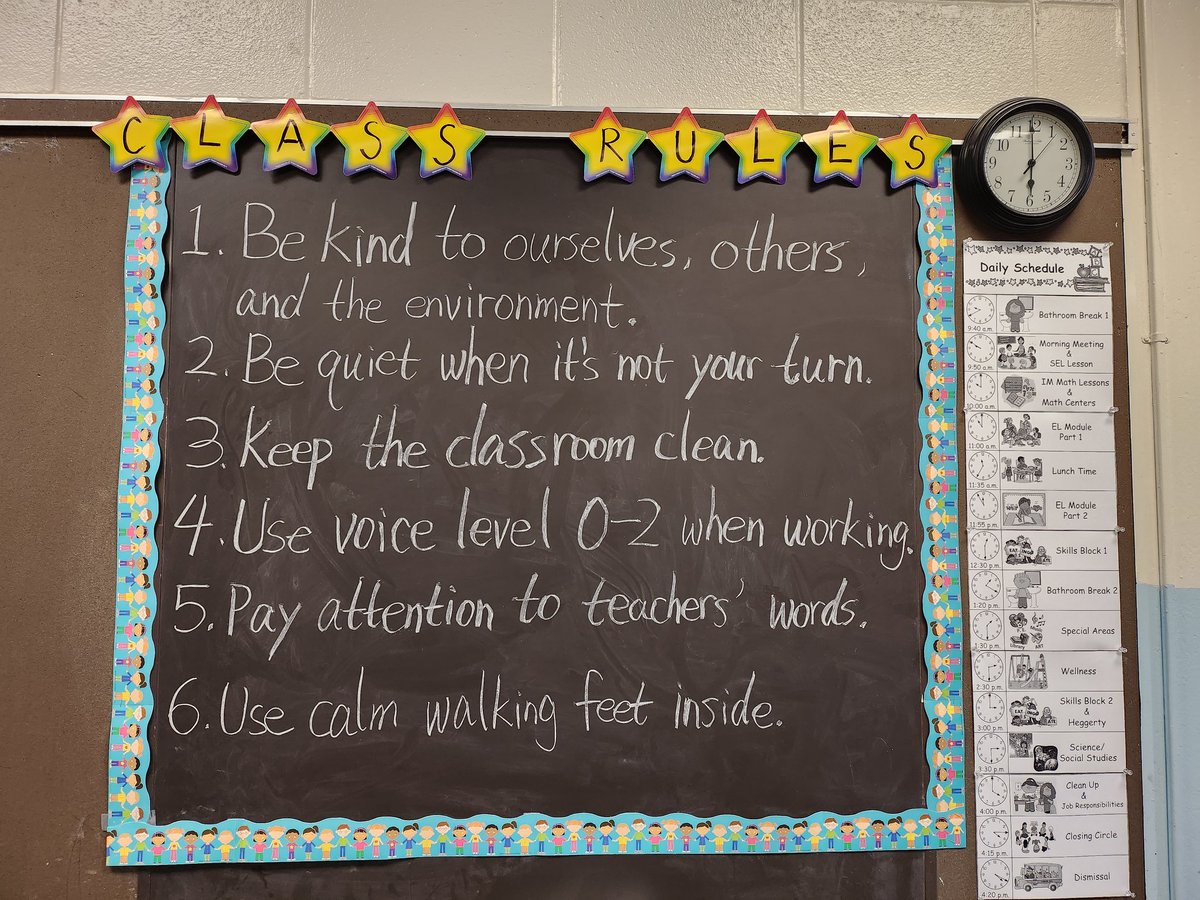 CLASS RULES
1. Be kind to ourselves, others,
and the environment.
2. Be quiet when it's not your turn.
3. Keep the classroom clean.
4. Use voice level 0-2 when working.
5. Pay attention to teachers' words.
6. Use calm walking feet inside.
12
1
2
3
4
5
6
7
8
9
10
11
Daily Schedule
9:40 a.m.
Bathroom Break 1
9:50 a.m.
Morning Meeting
&
SEL Lesson
10:00 a.m.
IM Math Lessons
&
Math Centers
11:00 a.m.
EL Module
Part 1
11:35 a.m.
Lunch Time
11:55 p.m.
EL Module
Part 2
12:30 p.m.
Skills Block 1
1:20 p.m.
Bathroom Break 2
1:30 p.m.
Library
ART
Special Areas
2:30 p.m.
Wellness
3:00 p.m.
Skills Block 2
&
Heggerty
3:30 p.m.
Science/
Social Studies
4:00 p.m.
Clean Up
&
Job Responsibilities
4:15 p.m.
Closing Circle
4:20 p.m.
Dismissal